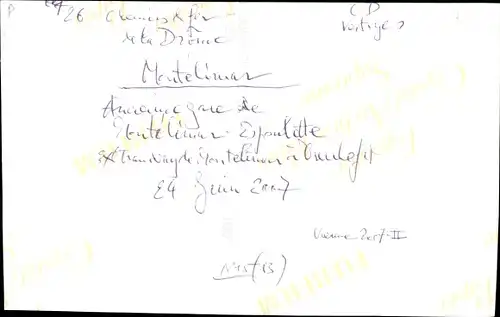 26 Chemins de fer
de la Drôme
CP
Montélimar
Ancienne gare de
Montélimar-Espoulette
ex Tramway de Montélimar à Dieulefit
24 Juin 2007
Vienne 2007-II
N°15 (13)